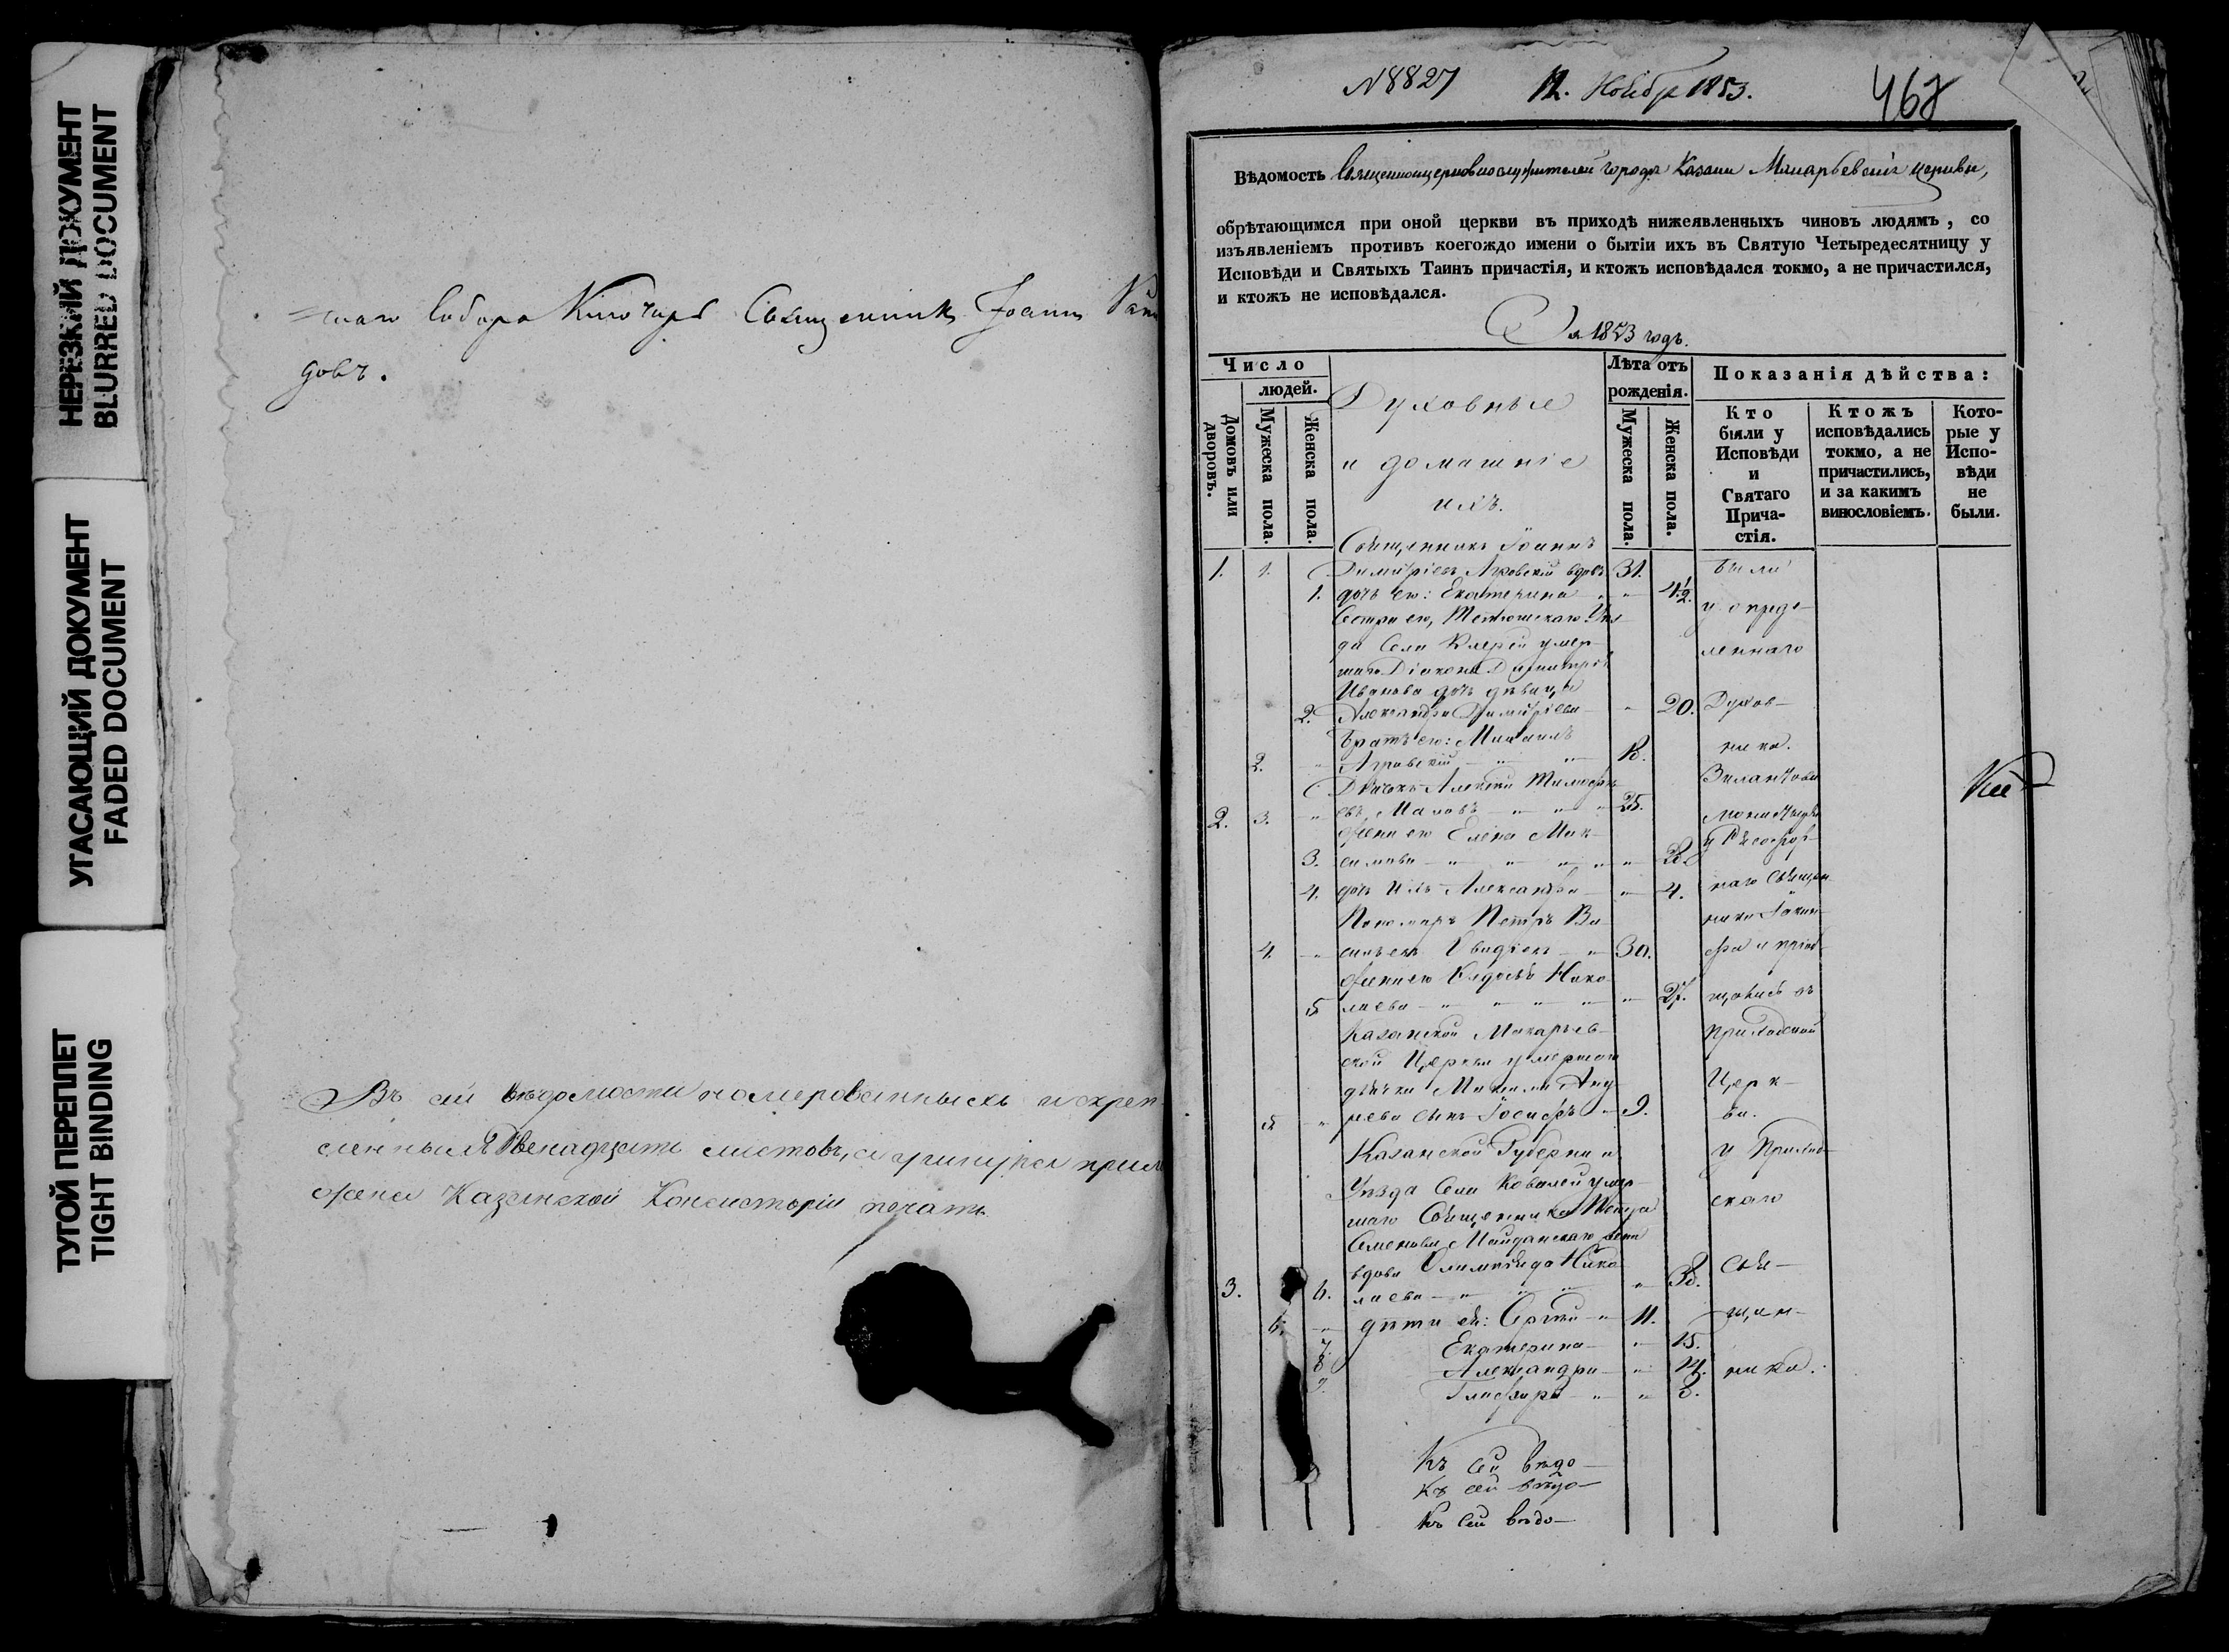 НЕРЕЗКИЙ ДОКУМЕНТ
BLURRED DOCUMENT
УГАСАЮЩИЙ ДОКУМЕНТ
FADED DOCUMENT
ТУГОЙ ПЕРЕПЛЕТ
TIGHT BINDING
=шаго Собора Ключарь Священникъ Іоаннъ
довъ.
Въ сей вѣдомости номерованныхъ и скреп-
ленныхъ двенадцать листовъ, а у шнура прило
жена Казанской Консисторіи печать
N 8827 12. Ноябр 1853.
468
Вѣдомость Священноцерковнослужителей города Казани Макарьевскія церкви,
обрѣтающимся при оной церкви въ приходѣ нижеявленныхъ чиновъ людямъ, со
изъявленіемъ противъ коегождо имени о бытіи ихъ въ Святую Четыредесятницу у
Исповѣди и Святыхъ Таинъ причастія, и ктожъ исповѣдался токмо, а не причастился,
и ктожъ не исповѣдался.
За 1853 годъ.
Число
людей.
Домовъ или дворовъ.
Мужеска пола.
Женска пола.
Духовные
и домашніе
ихъ.
Лѣта отъ
рожденія.
Мужеска пола.
Женска пола.
Показанія дѣйства:
Кто были у Исповѣди и Святаго Прича-стія.
Ктожъ исповѣдались токмо, а не причастились, и за какимъ винословіемъ.
Кото-рые у Испо-вѣди не были.
Священникъ Іоаннъ
1. 1. Димитріевъ Агровскій вдовъ 31. были
1. дочь его: Екатерина " 4 1/2. у опреде-
Сестра его, Тетюшскаго Уѣз
да Села умер- леннаго
шаго Діакона Димитрія
Иванова дочь дѣвица
2. Александра Димитріева " 20. Духов-
братъ его: Михаилъ ника.
2. " Агровскій " "
Дьячокъ Алексѣй Тимофѣ Зилантова
2. 3. " евъ, Маловъ " " 25. монастыря
жена его Елена Мак-
3. симова " " " "
4. дочь ихъ Александра " 4. наго Священ-
Пономарь Петръ Ва- ника
4. " сильевъ " 30.
жена его Нико-
5 лаева " " " " " 27.
Казанской Макарьев- приходской
ской Церкви умершаго
дьячка Михаила Анд- Церк-
5 " реева сынъ Іосифъ " 9. ви.
Казанской Губерніи и у Приход-
Уѣзда Села Ковалей умер-
шаго Священника Петра скаго
Семенова Майданскаго жена
вдова Олимпіада Нико Свя-
3. 6. лаева " " " "
6. " дѣти ея: Сергѣй " 11. щен-
7. Екатерина " 15.
8 Александра " 14. ника.
9. Глафира " " 8.
Къ сей вѣдо-
Къ сей вѣдо-
Къ сей вѣдо-